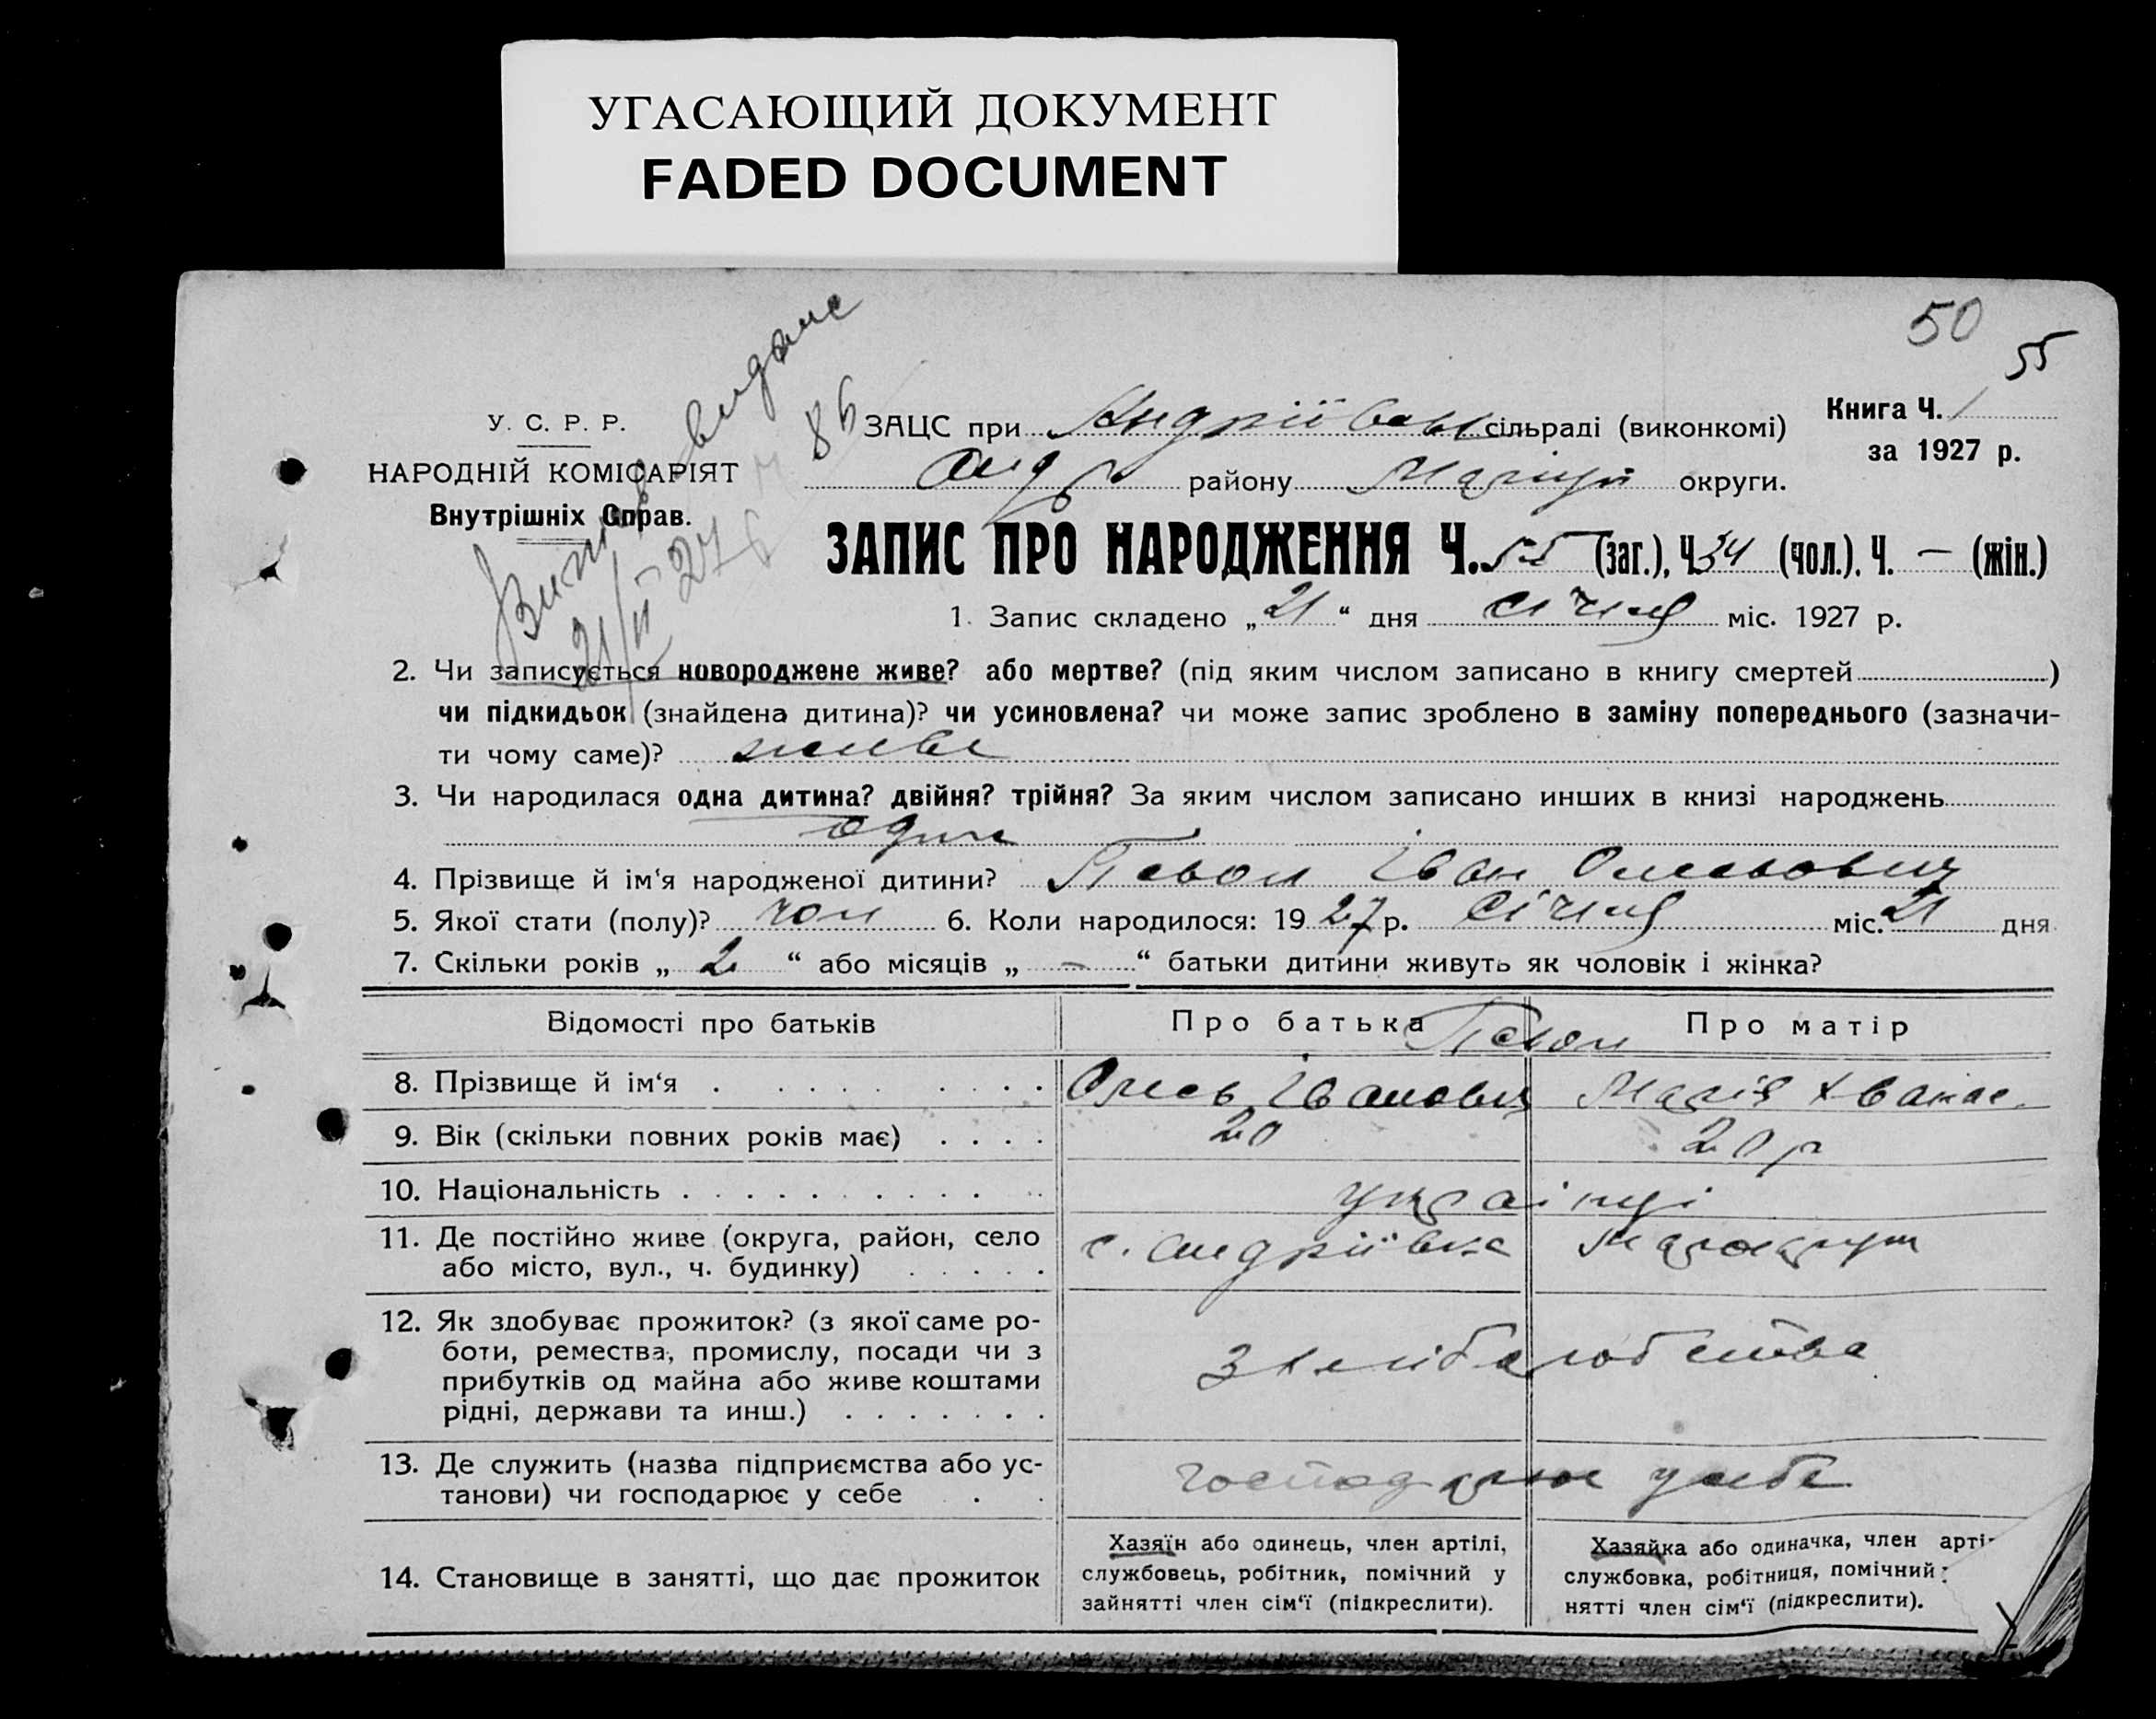 УГАСАЮЩИЙ ДОКУМЕНТ
FADED DOCUMENT
50
55
Випис видане
21/II 27 р
86
У. С. Р. Р.
НАРОДНІЙ КОМІСАРІЯТ
Внутрішніх Справ.
Книга Ч. 1
за 1927 р.
ЗАЦС при Андріївськ сільраді (виконкомі)
Андр району Маріуп округи.
ЗАПИС ПРО НАРОДЖЕННЯ Ч. 55 (заг.), Ч. 34 (чол.). Ч. — (жін.)
1. Запис складено „21“ дня січня міс. 1927 р.
2. Чи записується новороджене живе? або мертве? (під яким числом записано в книгу смертей )
чи підкидьок (знайдена дитина)? чи усиновлена? чи може запис зроблено в заміну попереднього (зазначи-
ти чому саме)? живе
3. Чи народилася одна дитина? двійня? трійня? За яким числом записано инших в книзі народжень
одна
4. Прізвище й ім‘я народженої дитини? Іван Олексович
5. Якої стати (полу)? чол 6. Коли народилося: 1927 р. січня міс. 21 дня
7. Скільки років „ 2 “ або місяців „ — “ батьки дитини живуть як чоловік і жінка?
Відомості про батьків Про батька Про матір
8. Прізвище й ім‘я Іванович Марія
9. Вік (скільки повних років має) 20 20 р
10. Національність українці
11. Де постійно живе (округа, район, село с. Андріївка
або місто, вул., ч. будинку)
12. Як здобуває прожиток? (з якої саме ро-
боти, ремества, промислу, посади чи з з хліборобства
прибутків од майна або живе коштами
рідні, держави та инш.)
13. Де служить (назва підприємства або ус- господарює у себе
танови) чи господарює у себе
14. Становище в занятті, що дає прожиток
Хазяїн або одинець, член артілі,
службовець, робітник, помічний у
зайнятті член сім‘ї (підкреслити).
Хазяйка або одиначка, член арті
службовка, робітниця, помічний
нятті член сім‘ї (підкреслити).